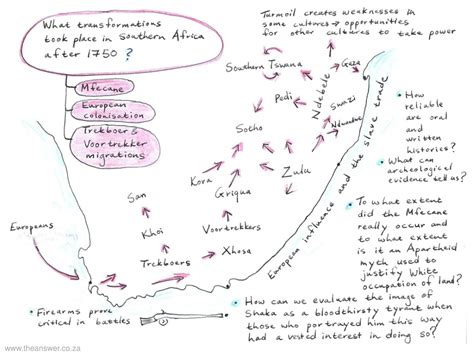 What transformations
took place in Southern Africa
after 1750 ?
Mfecane
European
colonisation
Trekboer &
Voortrekker
migrations
Turmoil creates weaknesses in
some cultures → opportunities
for other cultures to take power
Southern Tswana
Gaza
Pedi
Ndebele
Swazi
Ndwandwe
Sotho
Kora
Zulu
San
Griqua
Khoi
Voortrekkers
Xhosa
Trekboers
Europeans
European influence and the slave trade
• How
reliable
are oral
and
written
histories?
• What can
archeological
evidence tell us?
• To what extent
did the Mfecane
really occur and
to what extent
is it an Apartheid
myth used to
justify White
occupation of land?
• How can we evaluate the image of
Shaka as a bloodthirsty tyrant when
those who portrayed him this way
had a vested interest in doing so?
• Firearms prove
critical in battles
www.theanswer.co.za